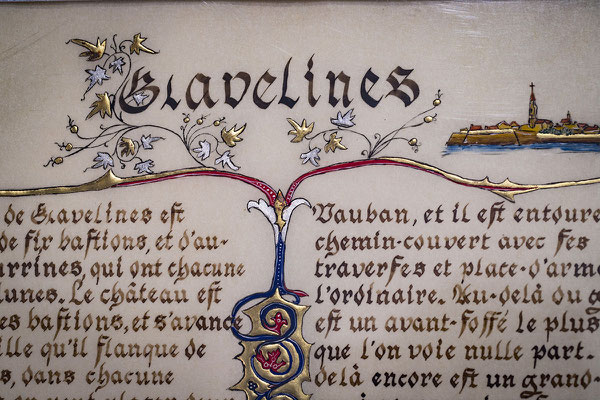 Gravelines
de Gravelines est
de six bastions, et d'au-
urrines, qui ont chacune
lunes. Le château est
es bastions, et s'avance
ille qu'il flanque de
s, dans chacune
Vauban, et il est entouré
chemin-couvert avec ses
traverses et place-d'arme
l'ordinaire. Au-delà du g
est un avant-fossé le plus
que l'on voie nulle part.
delà encore est un grand